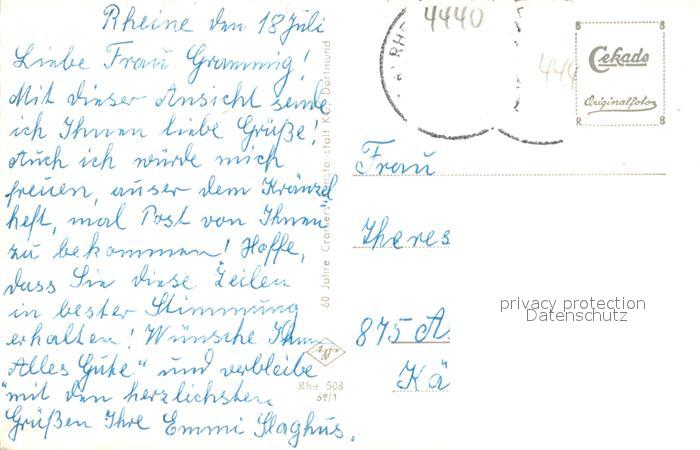 Rheine den 18 Juli
Liebe Frau Grammig!
Mit dieser Ansicht sende
ich Ihnen liebe Grüße!
Auch ich würde mich
freuen, auser dem Kränzel
heft, mal Post von Ihnen
zu bekommen! Hoffe,
dass Sie diese Zeilen
in bester Stimmung
erhalten! Wünsche Ihnen
Alles Gute" und verbleibe
"mit den herzlichsten
Grüßen Ihre Emmi Slaghus.
60 Jahre Cramers Kunstanstalt KG, Dortmund
Rhe 508
62/1
RHE
4440
444
Cekade
Originalfoto
Frau
Theres
875 A
Kä
privacy protection
Datenschutz